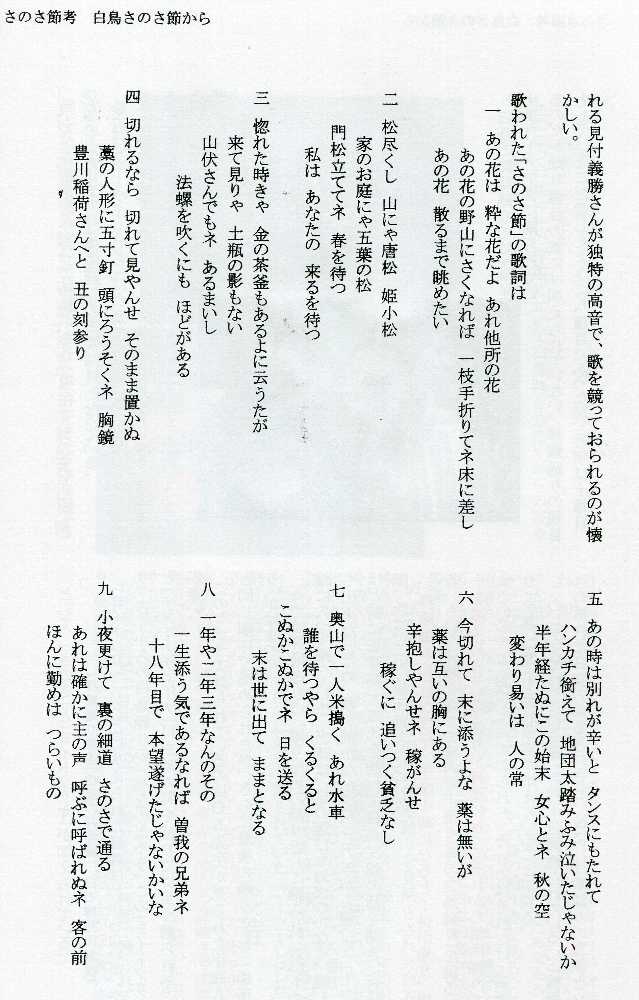 さのさ節考　白鳥さのさ節から
れる見付義勝さんが独特の高音で、歌を競っておられるのが懐
かしい。
歌われた「さのさ節」の歌詞は
一　あの花は　粋な花だよ　あれ他所の花
あの花の野山にさくなれば　一枝手折りてネ床に差し
あの花　散るまで眺めたい
二　松尽くし　山にゃ唐松　姫小松
家のお庭にゃ五葉の松
門松立ててネ　春を待つ
私は　あなたの　来るを待つ
三　惚れた時きゃ　金の茶釜もあるよに云うたが
来て見りゃ　土瓶の影もない
山伏さんでもネ　あるまいし
法螺を吹くにも　ほどがある
四　切れるなら　切れて見やんせ　そのまま置かぬ
藁の人形に五寸釘　頭にろうそくネ　胸鏡
豊川稲荷さんへと　丑の刻参り
五　あの時は別れが辛いと　タンスにもたれて
ハンカチ銜えて　地団太踏みふみ泣いたじゃないか
半年経たぬにこの始末　女心とネ　秋の空
変わり易いは　人の常
六　今切れて　末に添うよな　薬は無いが
薬は互いの胸にある
辛抱しやんせネ　稼がんせ
稼ぐに　追いつく貧乏なし
七　奥山で一人米搗く　あれ水車
誰を待つやら　くるくると
こぬかこぬかでネ　日を送る
末は世に出て　ままとなる
八　一年や二年三年なんのその
一生添う気であるなれば　曽我の兄弟ネ
十八年目で　本望遂げたじゃないかいな
九　小夜更けて　裏の細道　さのさで通る
あれは確かに主の声　呼ぶに呼ばれぬネ　客の前
ほんに勤めは　つらいもの